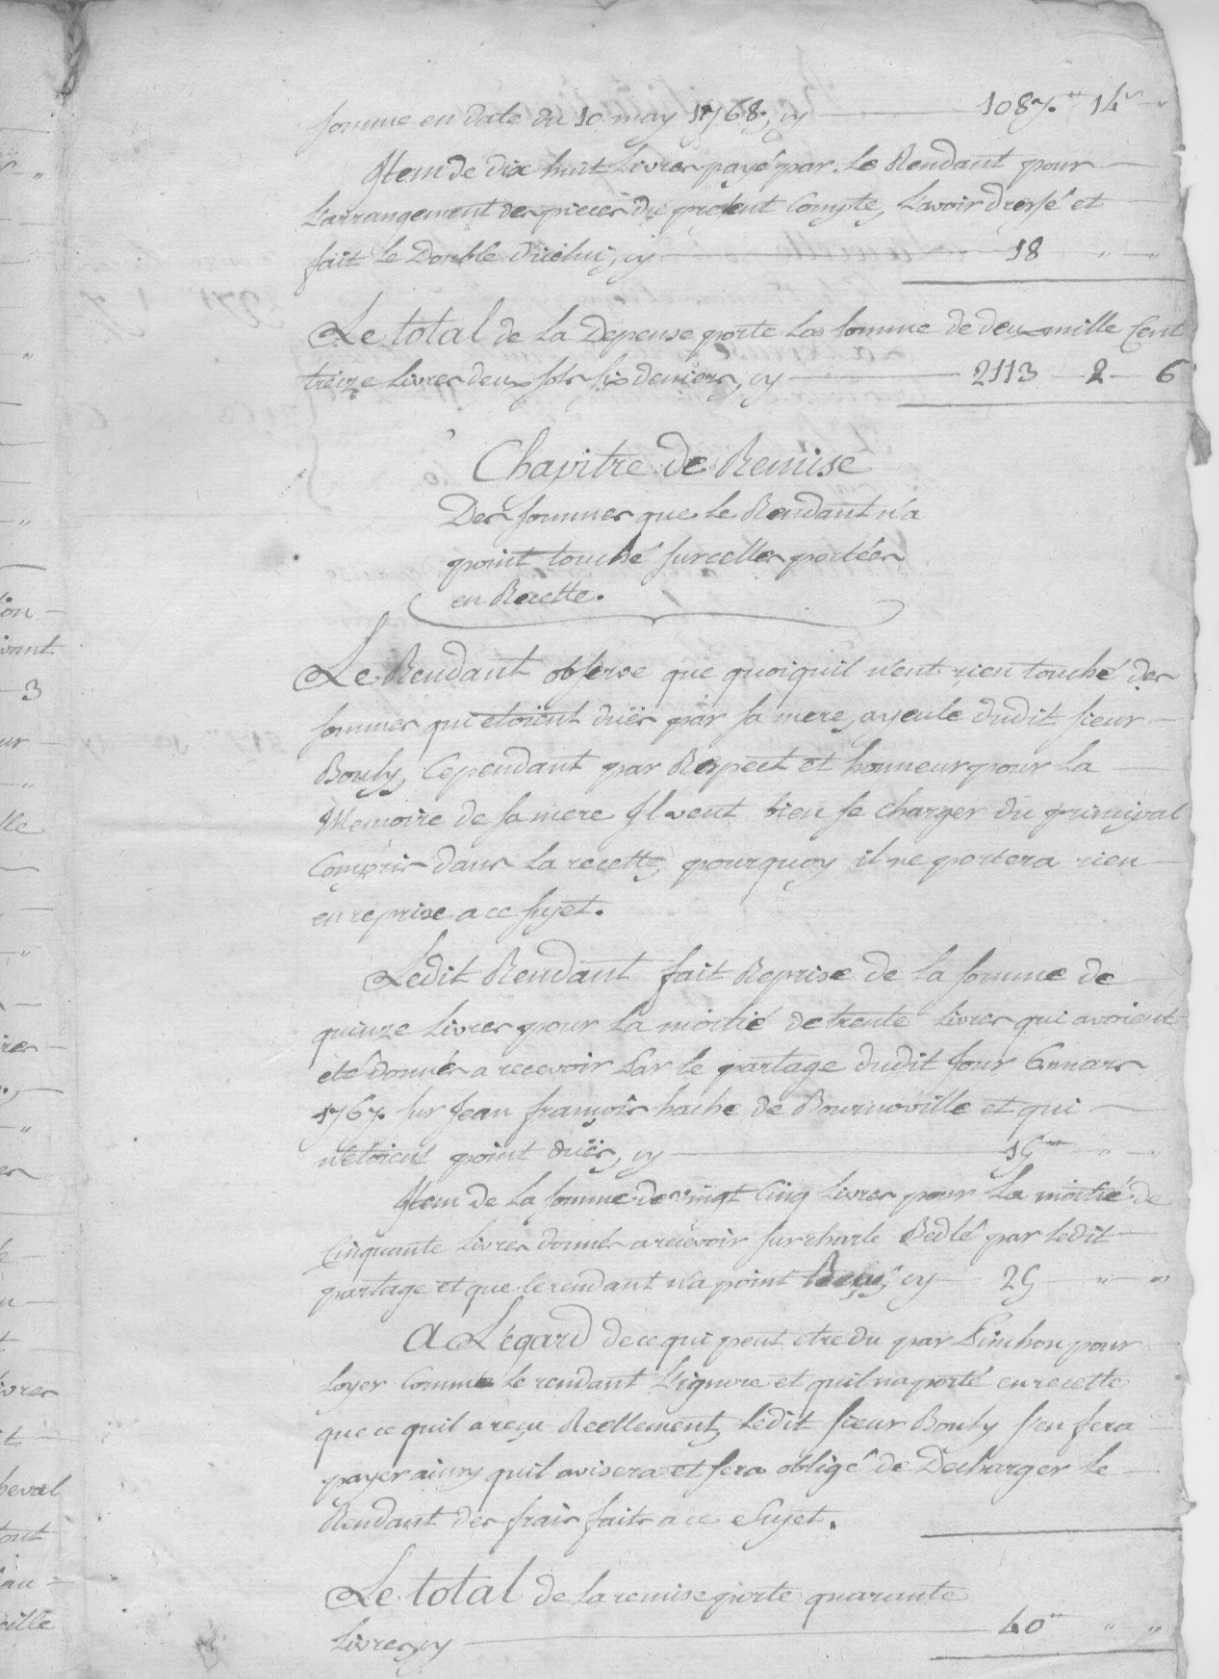 somme en date du 10 may 1768, cy — 1087.# 14s
Item de dix huit Livres payé par le Rendant pour
L'arrangement des pieces du present Compte, L'avoir dressé et
fait le Double d'icelui, cy — 18 " "
Le total de la Depense porte la somme de deux mille Cent
treize Livres deux sols six deniers, cy — 2113 — 2 — 6
Chapitre de Remise
Des sommes que le Rendant n'a
point touché sur celles portées
en Recette.
Le Rendant observe que quoiquil n'ent rien touché des
sommes qui etoient duës par sa mere, ayeule dudit sieur
Bouly, Cependant par Respect et honneur pour la
Memoire de sa mere Il veut bien se charger du principal
Compris dans la recette, pourquoy il ne portera rien
en reprise a ce sujet.
Ledit Rendant fait Reprise de la somme de
quinze Livres pour la moitié de trente Livres qui avoient
été donnés a recevoir Par le partage dudit jour 6 mars
1767. sur Jean françois hache de Bournoville et qui
n'etoient point duës, cy — 15# " "
Item de la somme de vingt Cinq Livres pour la moitié de
Cinquante Livres donnés a recevoir sur charle Bedlé par ledit
partage et que le rendant n'a point Reçus, cy — 25 " "
A L'egard de ce qui peut etre du par Pinchon pour
Loyer Comme le rendant L'ignore et quil n'a porté en recette
que ce quil a reçu Reellement, Ledit sieur Bouly s'en fera
payer ainsy quil avisera et sera obligé de Decharger le
Rendant des frais faits a ce Sujet.
Le total de la remise porte quarante
Livres, cy — 40# " "